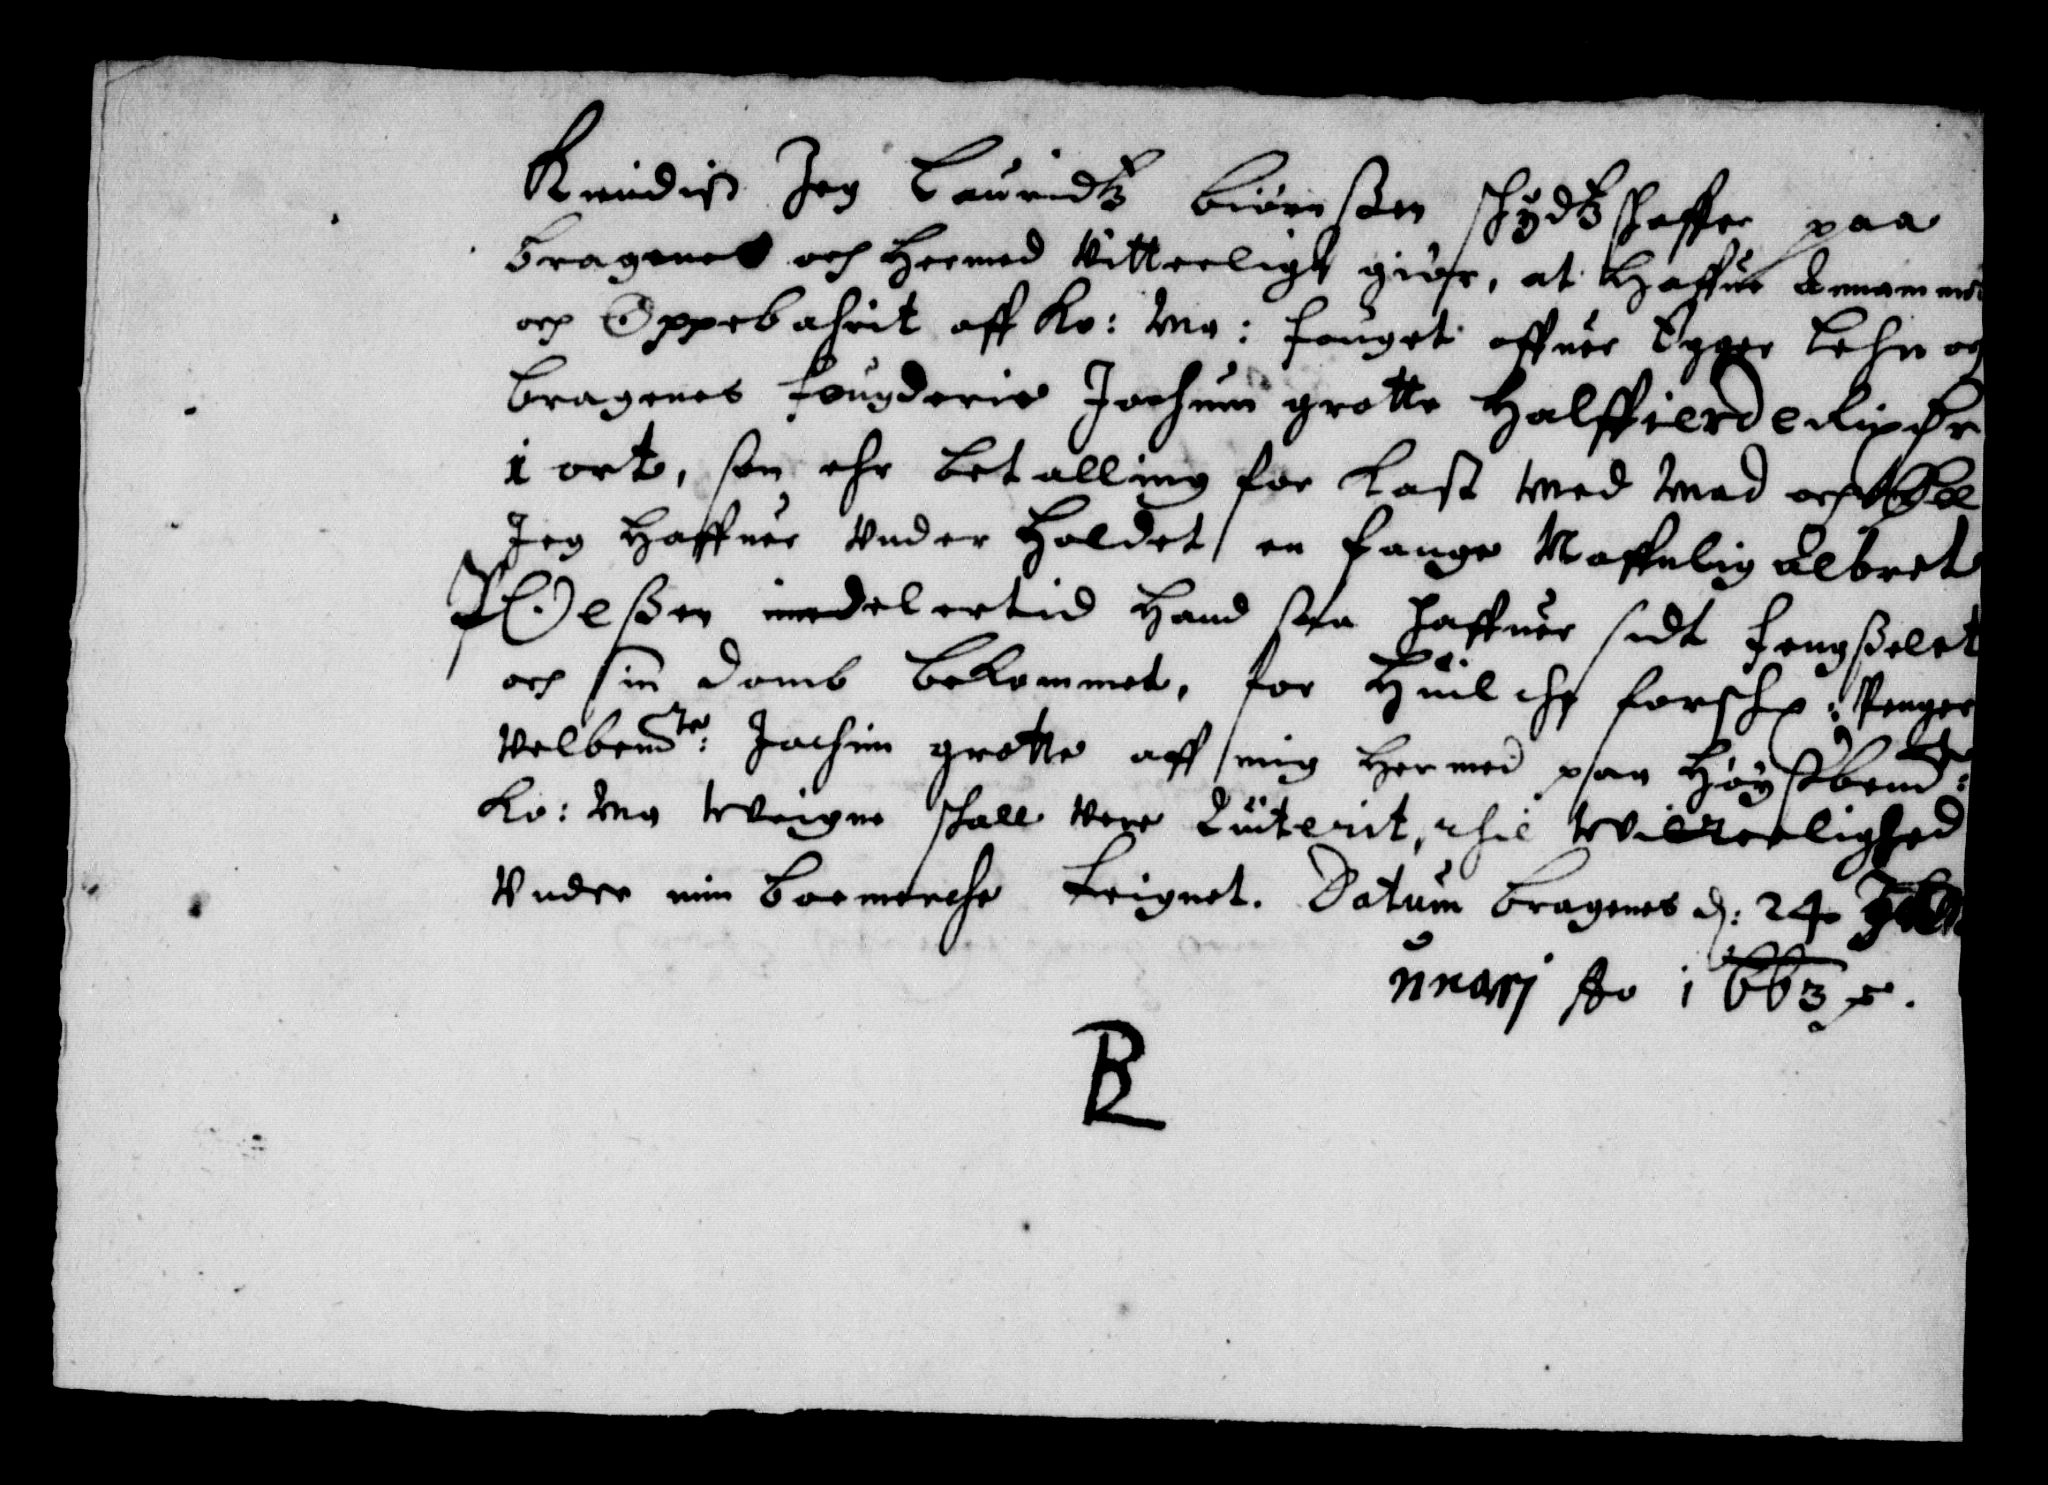 Kiendis Jeg Lauridtz Biørnßen schydtzschaffer paa
Bragenes och Hermed Vitterligt giør, at Haffue Annammet
och Oppebahrit aff Ko: Ma: fouget offuer Egger Lehn och
Bragenes fougderie Jochum grotte Halffierde Rixdr
1 ort, som ehr betalling for Kost med Mad och Øll
Jeg Haffuer Vnder Holdet en fange Naffnlig Albret
Olßen imedelertid Hand saa haffuer sidt fengßelet
och sin domb bekommet, for Huilche forschr: Penger
Velbemte: Jochim grotte aff mig Hermed paa Høystbemte:
Ko: Ma Weigne schall Vere Quiterit, thil Witterlighed
Vnder min Boemerche teignet. Datum Bragenes d: 24 Ja
nuarj Ao 1663.
BL